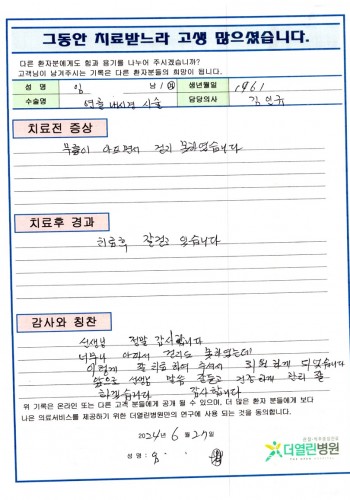 그동안 치료받느라 고생 많으셨습니다.
다른 환자분에게도 힘과 용기를 나누어 주시겠습니까?
고객님이 남겨주시는 기록은 다른 환자분들의 희망이 됩니다.
성 명 임 남 / 여 생년월일 1961
수술명 내시경 시술 담당의사 김
치료전 증상
무릎이 아프면서 걷지 못하였습니다
치료후 경과
치료후 잘걷고 있습니다
감사와 칭찬
선생님 정말 감사합니다
너무나 아파서 걷지도 못하였는데
이렇게 잘 치료하여 주셔서 회복하게 되었습니다
앞으로 선생님 말씀 잘듣고 건강하게 관리 잘
하겠습니다 감사합니다
위 기록은 온라인 또는 다른 고객 분들에게 공개 될 수 있으며, 더 많은 환자 분들에게 보다
나은 의료서비스를 제공하기 위한 더열린병원만의 연구에 사용 되는 것을 동의합니다.
2024년 6월 27일
더열린병원
성 명 : 임